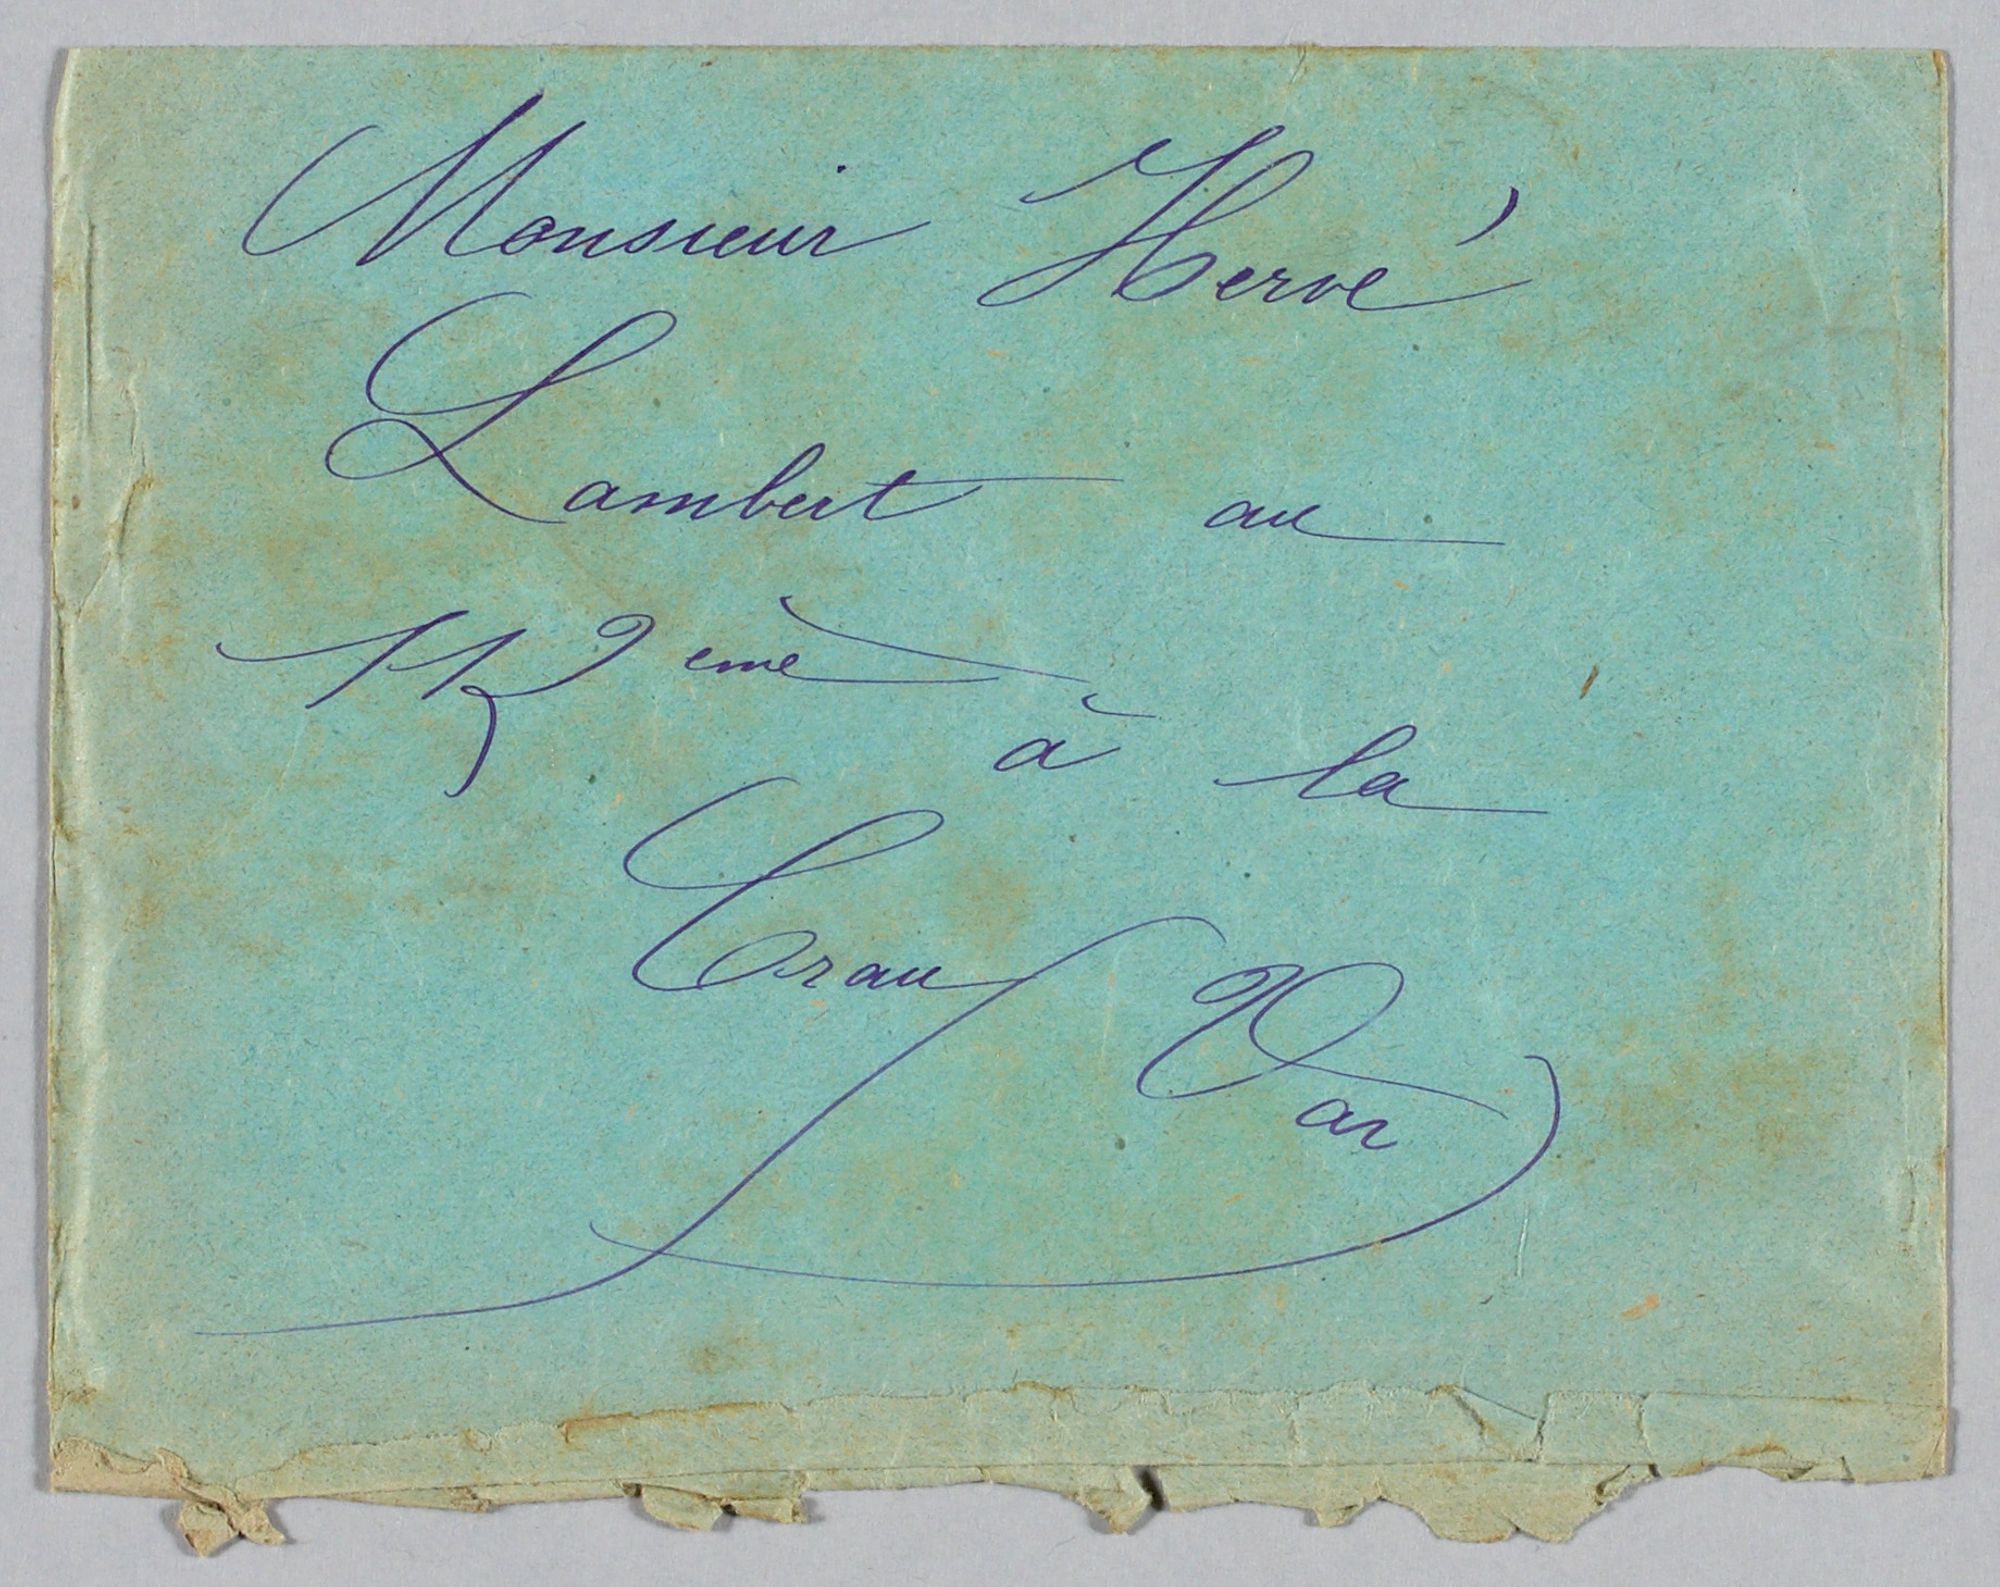 Monsieur Hervé
Lambert au
112 ème
à la
Crau
Var